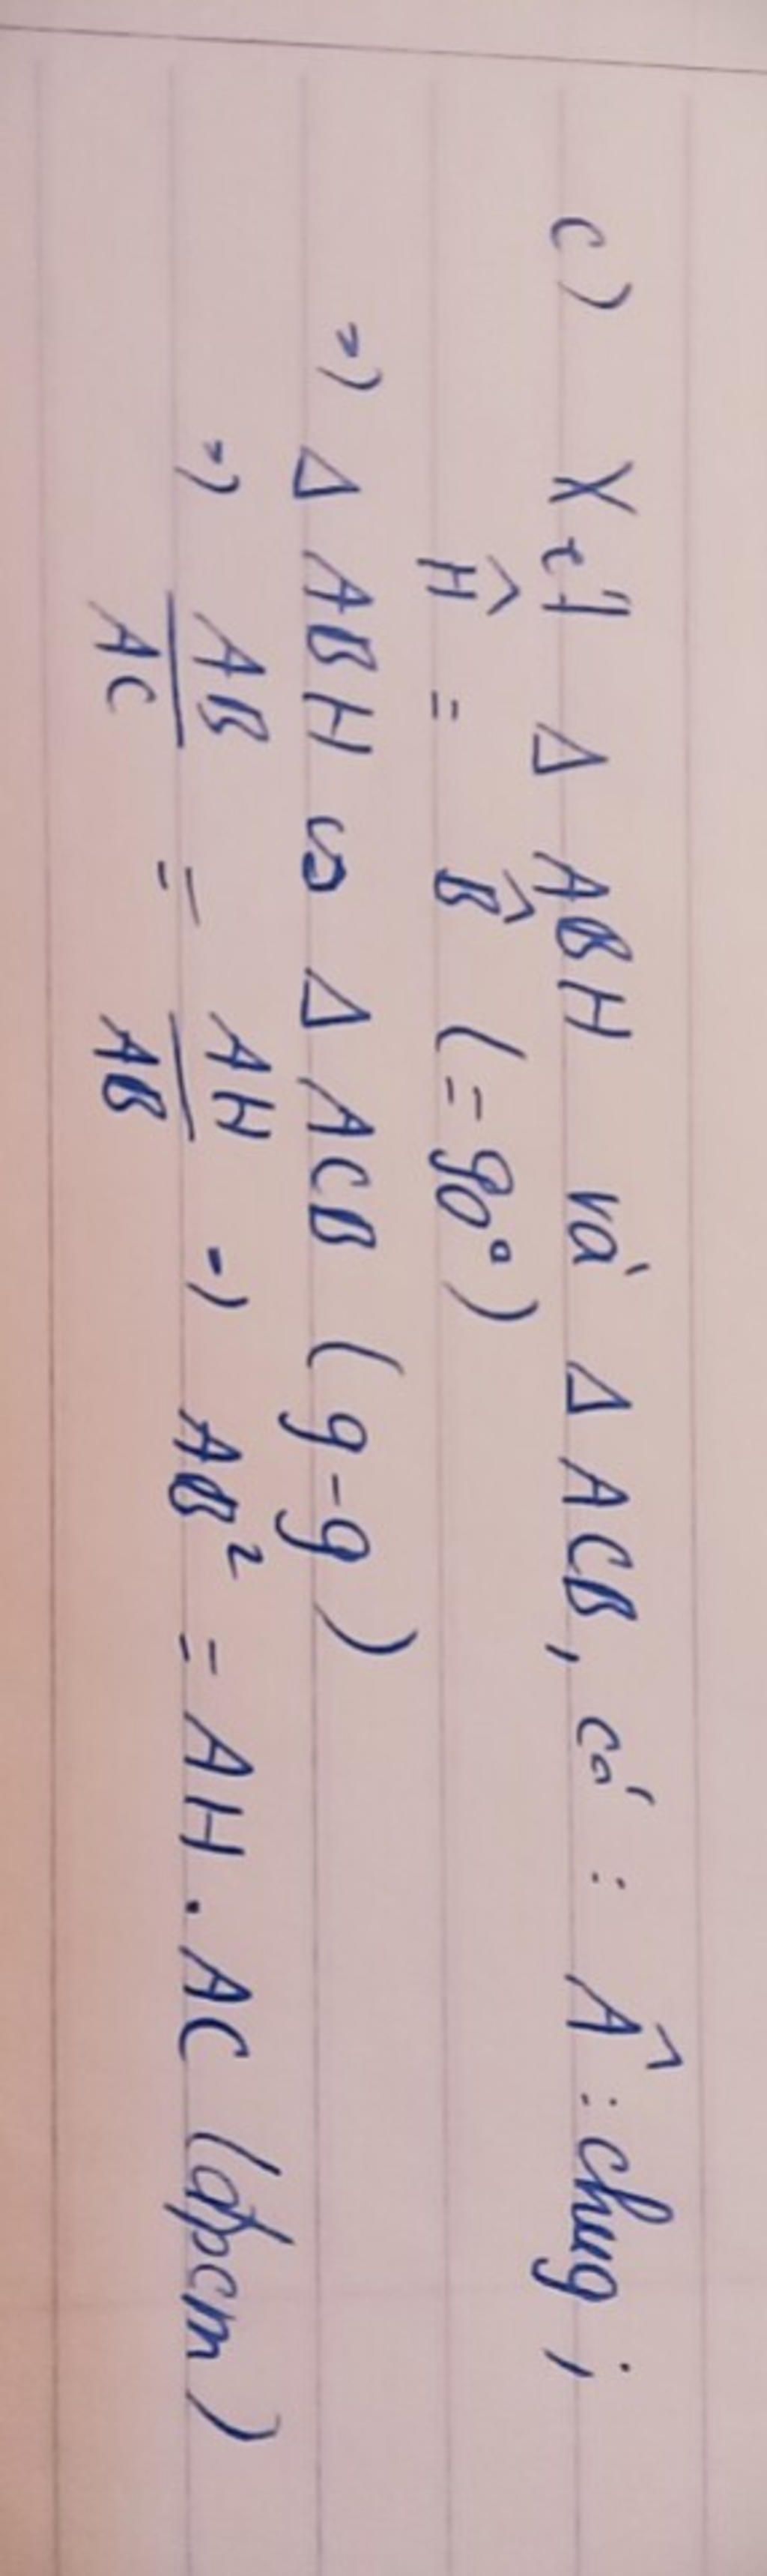 c) Xét Δ ABH và Δ ACB, có : Â : chug ;
Ĥ = B̂ (= 90°)
=) Δ ABH ᔕ Δ ACB (g-g)
=) AB/AC = AH/AB =) AB² = AH . AC (đpcm)